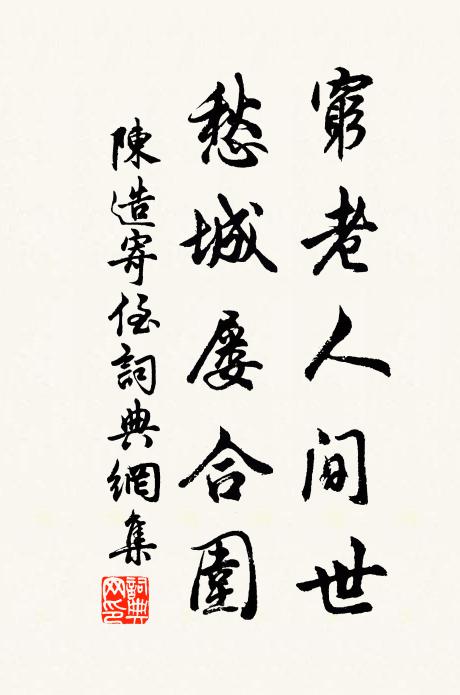 窮老人间世
愁城屡合圍
陳造寄侄詞典網集
詞典网印